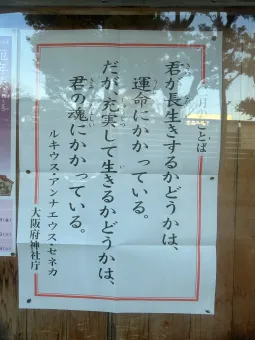 月のことば
君が長生きするかどうかは、
運命にかかっている。
だが、充実して生きるかどうかは、
君の魂にかかっている。
ルキウス・アンナエウス・セネカ
大阪府神社庁